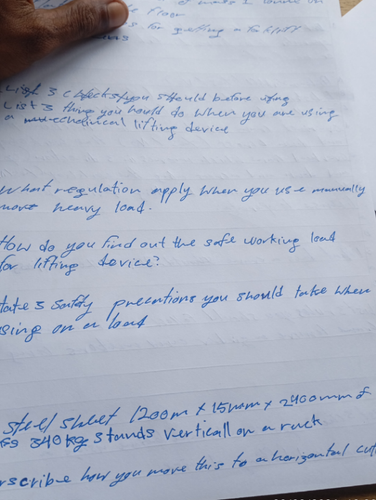 floor
for getting a
List 3 checks you should before using
List 3 things you should do when you are using
a mechanical lifting device
What regulation apply when you use manually
move heavy load.
How do you find out the safe working load
for lifting device?
tate 3 safty precautions you should take when
sing on a load
steel sheet 1200m x 15mm x 2400mm &
340kg stands verticall on a rack
scribe how you move this to a horizontal cut